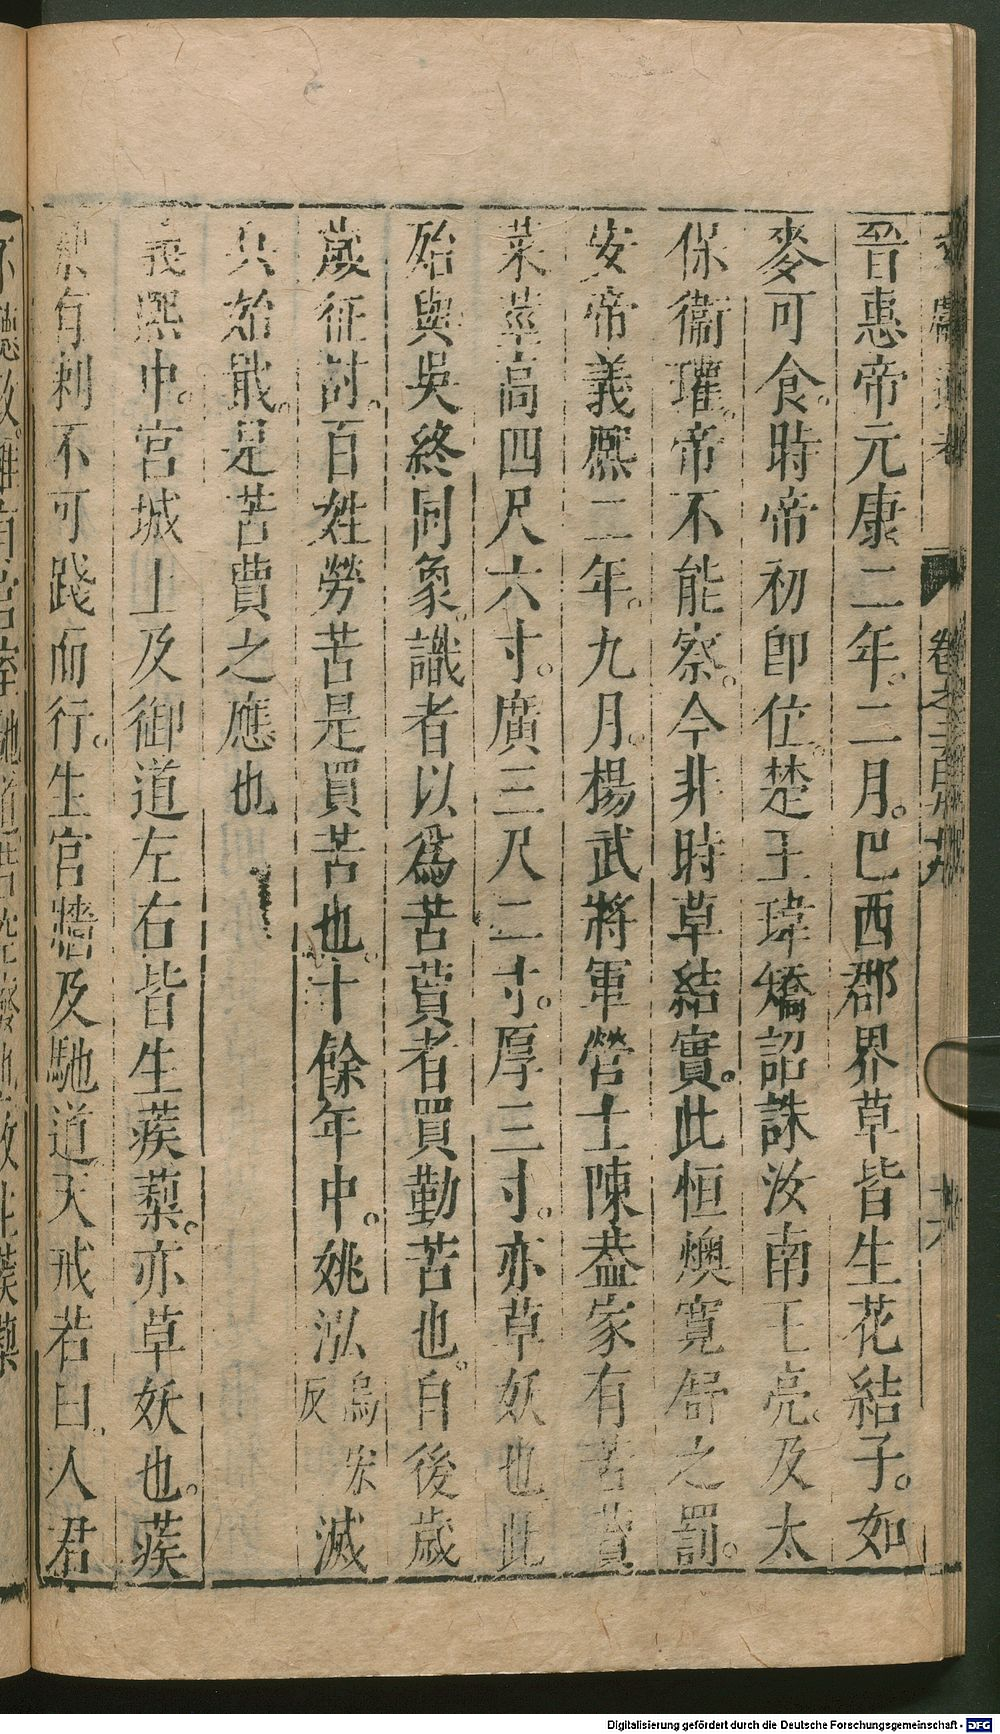 晉惠帝元康二年。二月。巴西郡界草皆生花結子。如
麥可食。時帝初即位。楚王瑋矯詔誅汝南王亮。及太
保衞瓘。帝不能察。今非時草結實。此恒燠寬舒之罰。
安帝義熙二年。九月。楊武將軍營士陳葢家有苦蕒
菜莖高四尺六寸。廣三尺二寸。厚三寸。亦草妖也此
殆與吳終同象。識者以爲苦蕒者買勤苦也。自後歲
歲征討。百姓勞苦是買苦也。十餘年中。姚泓烏宏反滅
兵始戢。是苦蕒之應也
義熙中。宮城上及御道左右皆生蒺蔾。亦草妖也。蒺
蔾有刺不可踐而行。生宮牆及馳道天戒若曰。人君
不聽政雖有宮室馳道若空廢也故生蒺蔾
文獻通考
卷之三百九
十六
Digitalisierung gefördert durch die Deutsche Forschungsgemeinschaft - DFG